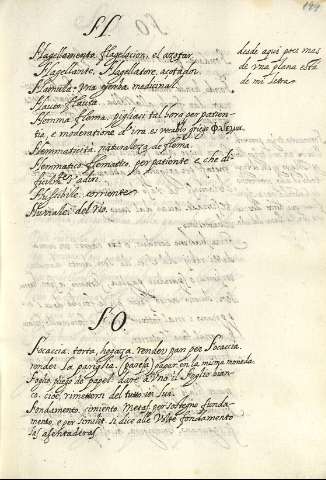 FL.
Flagellamento. flagelacion, el açotar.
Flagellante, Flagellatore, açotador.
Flamula. una yerba medicinal.
Flauto. flauta.
Flemma. floma. pigliasi tal hora per patien-
tia, e moderatione d'ira. es vocablo griego
Flemmaticità. naturaleza de flema.
Flemmatico. flematico. per patiente e, che di
Flussibile. corriente.
Fluviale. del rio.
desde aqui poco mas
de una plana está
de mi letra
FO.
Focaccia. torta, hogaza. render pan per focaccia.
render la pariglia. (pareja) pagar en la misma moneda.
Foglio. pliego de papel. dare à uno il foglio bian-
co. cioè, rimettersi del tutto in lui.
Fondamento. cimiento. Metaf. per sostegno. funda-
mento. e per simil. si dice alle volte fondamento